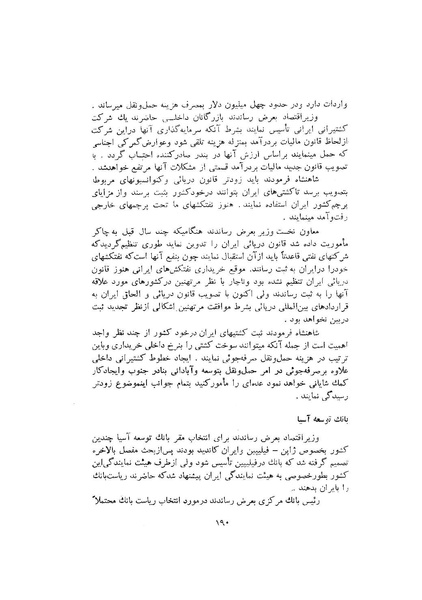 واردات دارد ودر حدود چهل میلیون دلار بمصرف هزینه حمل‌ونقل میرساند .
وزیراقتصاد بعرض رساندند بازرگانان داخلی حاضرند یك شرکت
کشتیرانی ایرانی تأسیس نمایند بشرط آنکه سرمایه‌گذاری آنها دراین شرکت
ازلحاظ قانون مالیات بردرآمد بمنزله هزینه تلقی شود وعوارض‌گمرکی اجناسی
که حمل مینمایند براساس ارزش آنها در بندر صادرکننده احتساب گردد . با
تصویب قانون جدید مالیات بردرآمد قسمتی از مشکلات آنها مرتفع خواهدشد .
شاهنشاه فرمودند باید زودتر قانون دریائی وکنوانسیونهای مربوط
بتصویب برسد تاکشتی‌های ایران بتوانند درخودکشور بثبت برسند وازمزایای
پرچم‌کشور ایران استفاده نمایند . هنوز نفتکشهای ما تحت پرچمهای خارجی
رفت‌وآمد مینمایند .
معاون نخست وزیر بعرض رساندند هنگامیکه چند سال قبل به‌چاکر
مأموریت داده شد قانون دریائی ایران را تدوین نماید طوری تنظیم‌گردیدکه
شرکتهای نفتی قاعدتاً باید ازآن استقبال نمایند چون بنفع آنها است‌که نفتکشهای
خودرا درایران به ثبت رسانند. موقع خریداری نفتکش‌های ایرانی هنوز قانون
دریائی ایران تنظیم نشده بود وناچار با نظر مرتهنین درکشورهای مورد علاقه
آنها را به ثبت رساندند ولی اکنون با تصویب قانون دریائی و الحاق ایران به
قراردادهای بین‌المللی دریائی بشرط موافقت مرتهنین اشکالی ازنظر تجدید ثبت
دربین نخواهد بود .
شاهنشاه فرمودند ثبت کشتیهای ایران درخود کشور از چند نظر واجد
اهمیت است از جمله آنکه میتوانند سوخت کشتی را بنرخ داخلی خریداری وباین
ترتیب در هزینه حمل‌ونقل صرفه‌جوئی نمایند . ایجاد خطوط کشتیرانی داخلی
علاوه برصرفه‌جوئی در امر حمل‌ونقل بتوسعه وآبادانی بنادر جنوب وایجادکار
کمك شایانی خواهد نمود عده‌ای را مأمورکنید بتمام جوانب اینموضوع زودتر
رسیدگی نمایند .
بانك توسعه آسیا
وزیراقتصاد بعرض رساندند برای انتخاب مقر بانك توسعه آسیا چندین
کشور بخصوص ژاپن – فیلیپین وایران کاندید بودند پس‌ازبحث مفصل بالاخره
تصمیم گرفته شد که بانك درفیلیپین تأسیس شود ولی ازطرف هیئت نمایندگی‌این
کشور بطورخصوصی به هیئت نمایندگی ایران پیشنهاد شدکه حاضرند ریاست‌بانك
را بایران بدهند .
رئیس بانك مرکزی بعرض رساندند درمورد انتخاب ریاست بانك محتملاً
۱۹۰